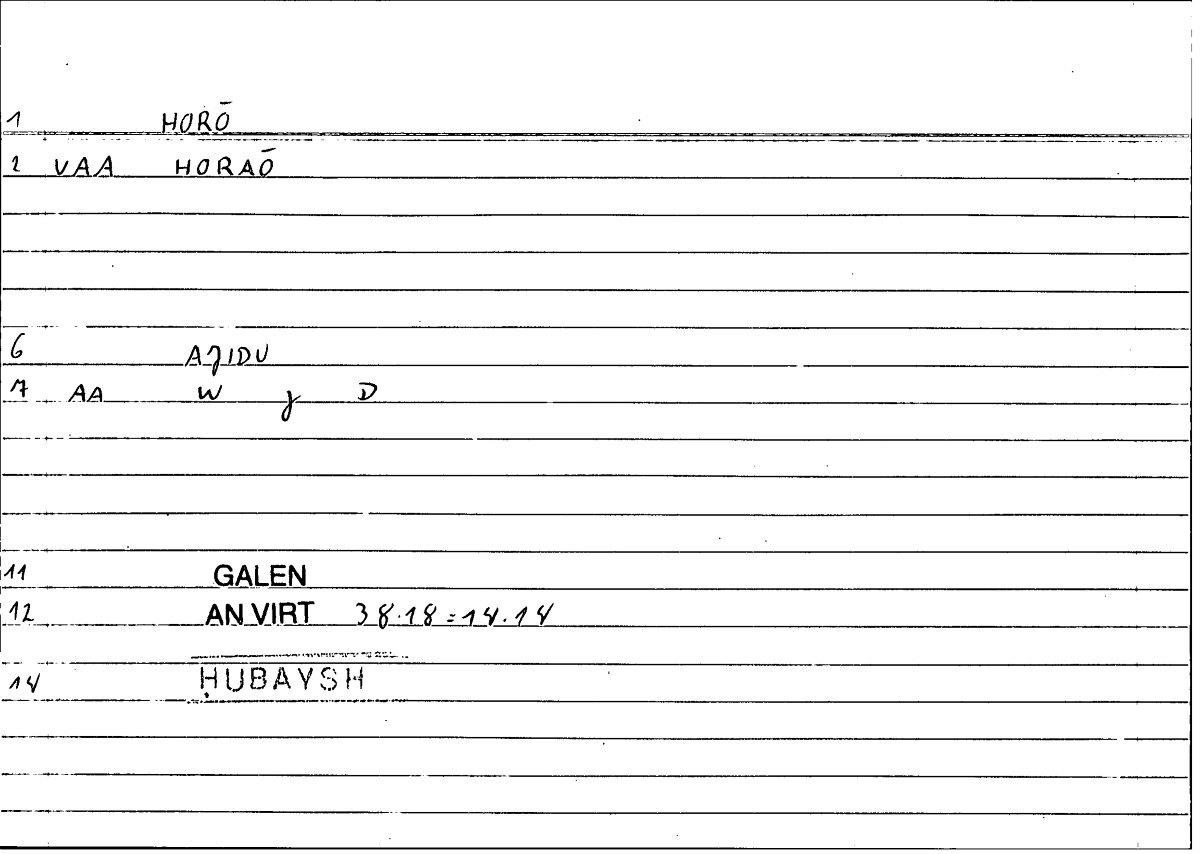 1 HORŌ
2 VAA HORAŌ
6 AJIDU
7 AA W J D
11 GALEN
12 AN VIRT 38.18 = 14.14
14 ḤUBAYSH